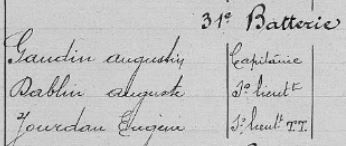 31e Batterie
Gaudin Augustin Capitaine
Dablin Auguste lieutt
Jourdan Eugène lieutt T.T.